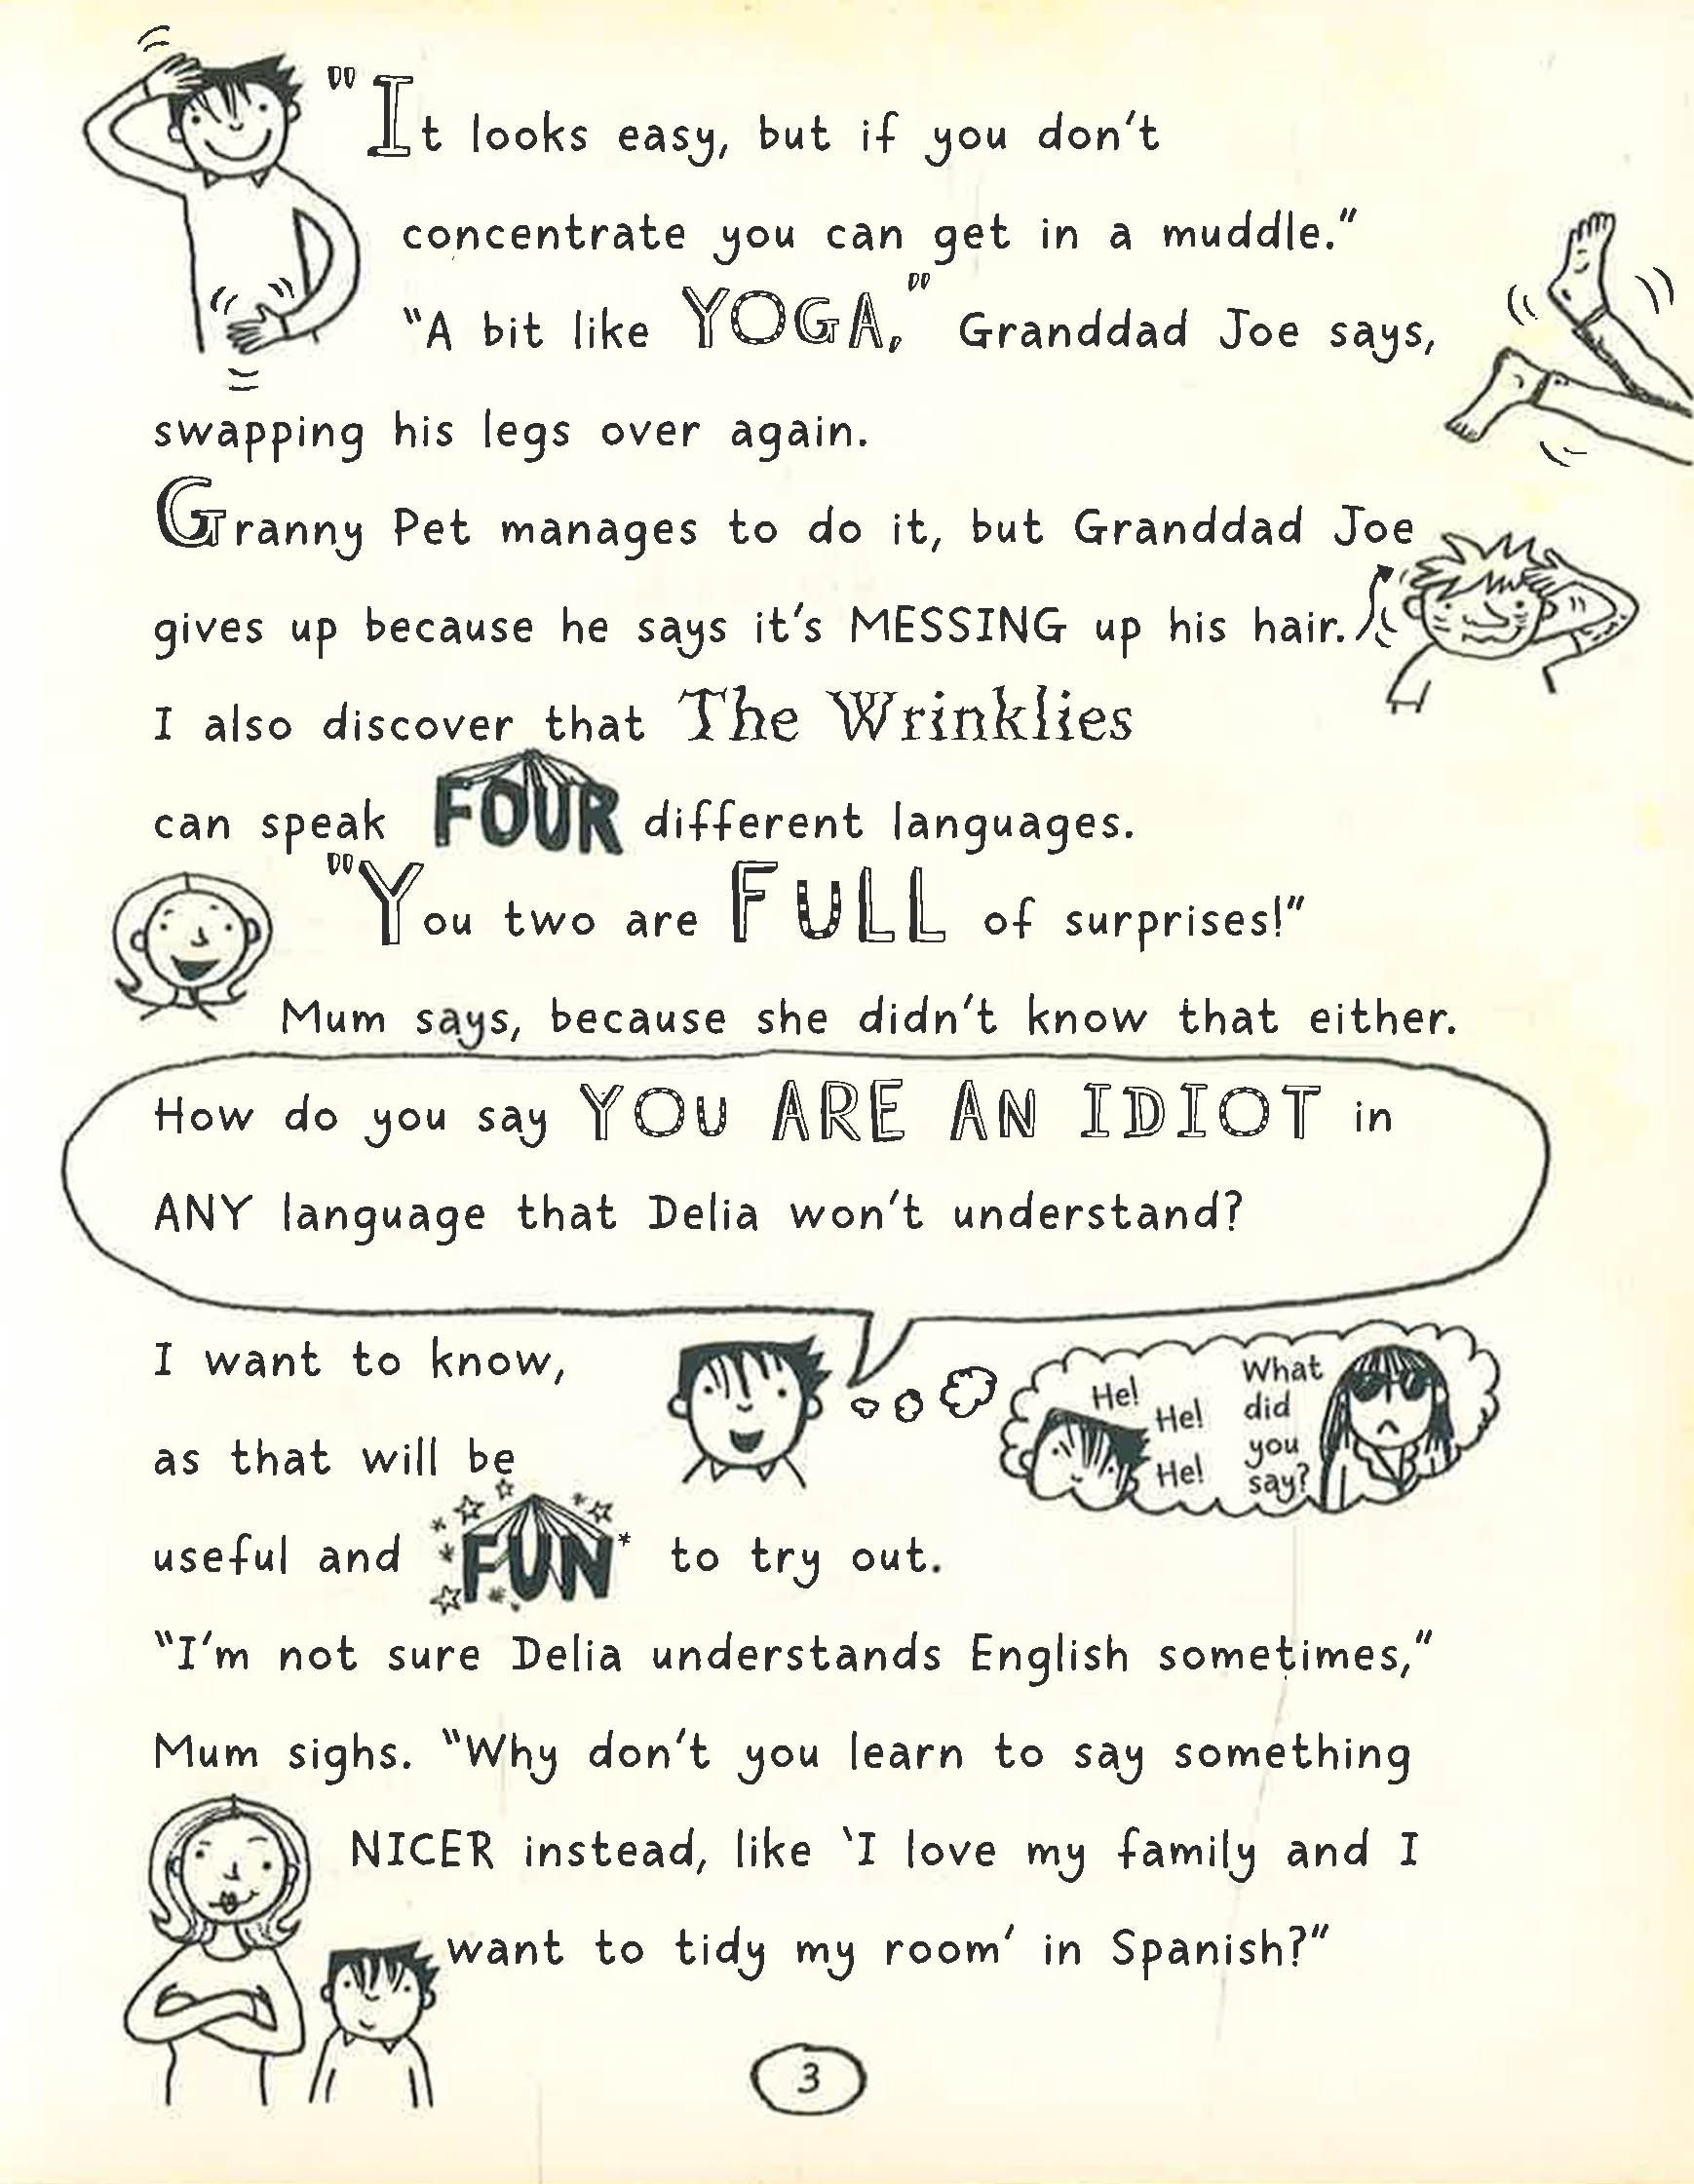 "It looks easy, but if you don't
concentrate you can get in a muddle."
"A bit like YOGA," Granddad Joe says,
swapping his legs over again.
Granny Pet manages to do it, but Granddad Joe
gives up because he says it's MESSING up his hair.
I also discover that The Wrinklies
can speak FOUR different languages.
"You two are FULL of surprises!"
Mum says, because she didn't know that either.
How do you say YOU ARE AN IDIOT in
ANY language that Delia won't understand?
I want to know,
as that will be
useful and FUN* to try out.
He!
He!
He!
What
did
you
say?
"I'm not sure Delia understands English sometimes,"
Mum sighs. "Why don't you learn to say something
NICER instead, like 'I love my family and I
want to tidy my room' in Spanish?"
3